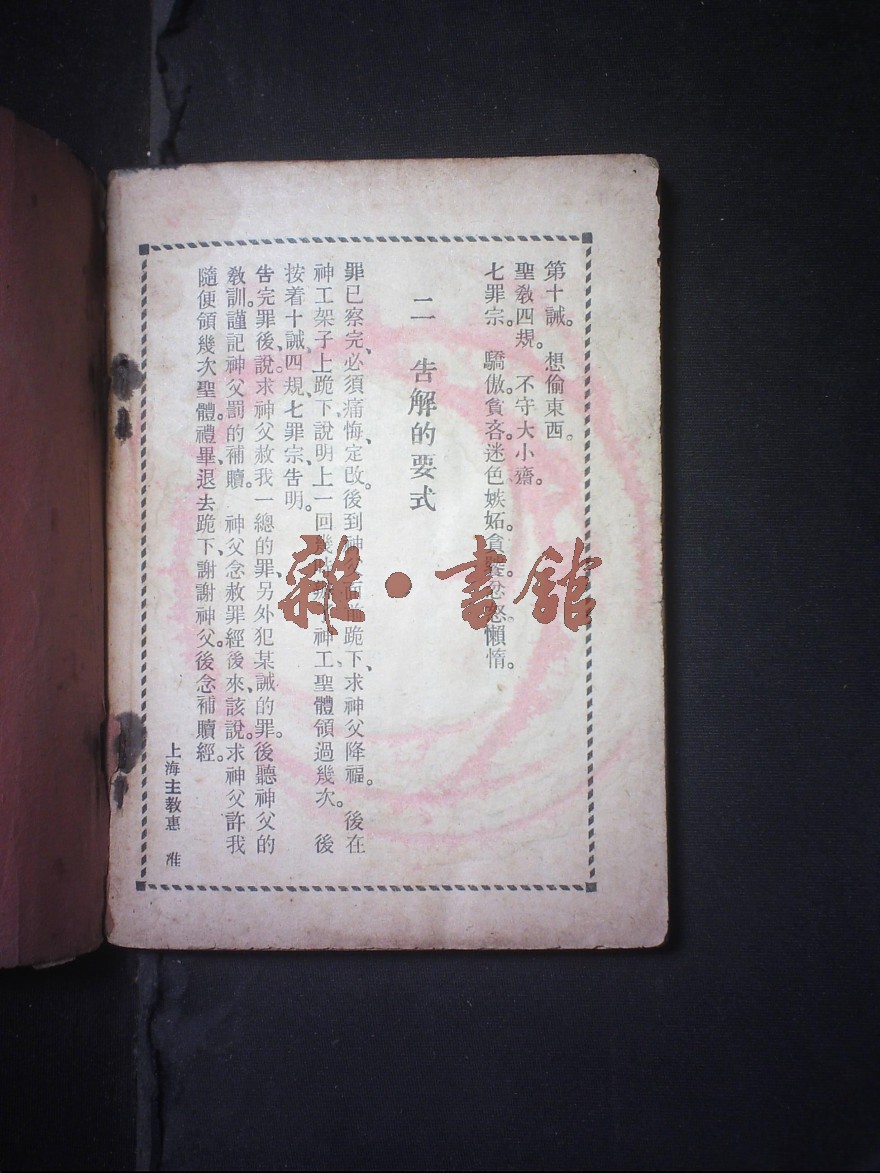 第十誡。想偷東西。
聖教四規。不守大小齋。
七罪宗。驕傲。貪吝。迷色。嫉妬。貪饕。忿怒。懶惰。
二 告解的要式
罪已察完、必須痛悔、定改。後到神父面前跪下、求神父降福。後在
神工架子上跪下、說明上一回幾時辦神工、聖體領過幾次。後
按着十誡、四規、七罪宗、告明。
告完罪後、說。求神父赦我一總的罪、另外犯某誡的罪。後聽神父的
教訓。謹記神父罰的補贖。神父念赦罪經後來、該說。求神父許我
隨便領幾次聖體。禮畢、退去跪下、謝謝神父。後念補贖經。
上海主教惠 准
雜·書館